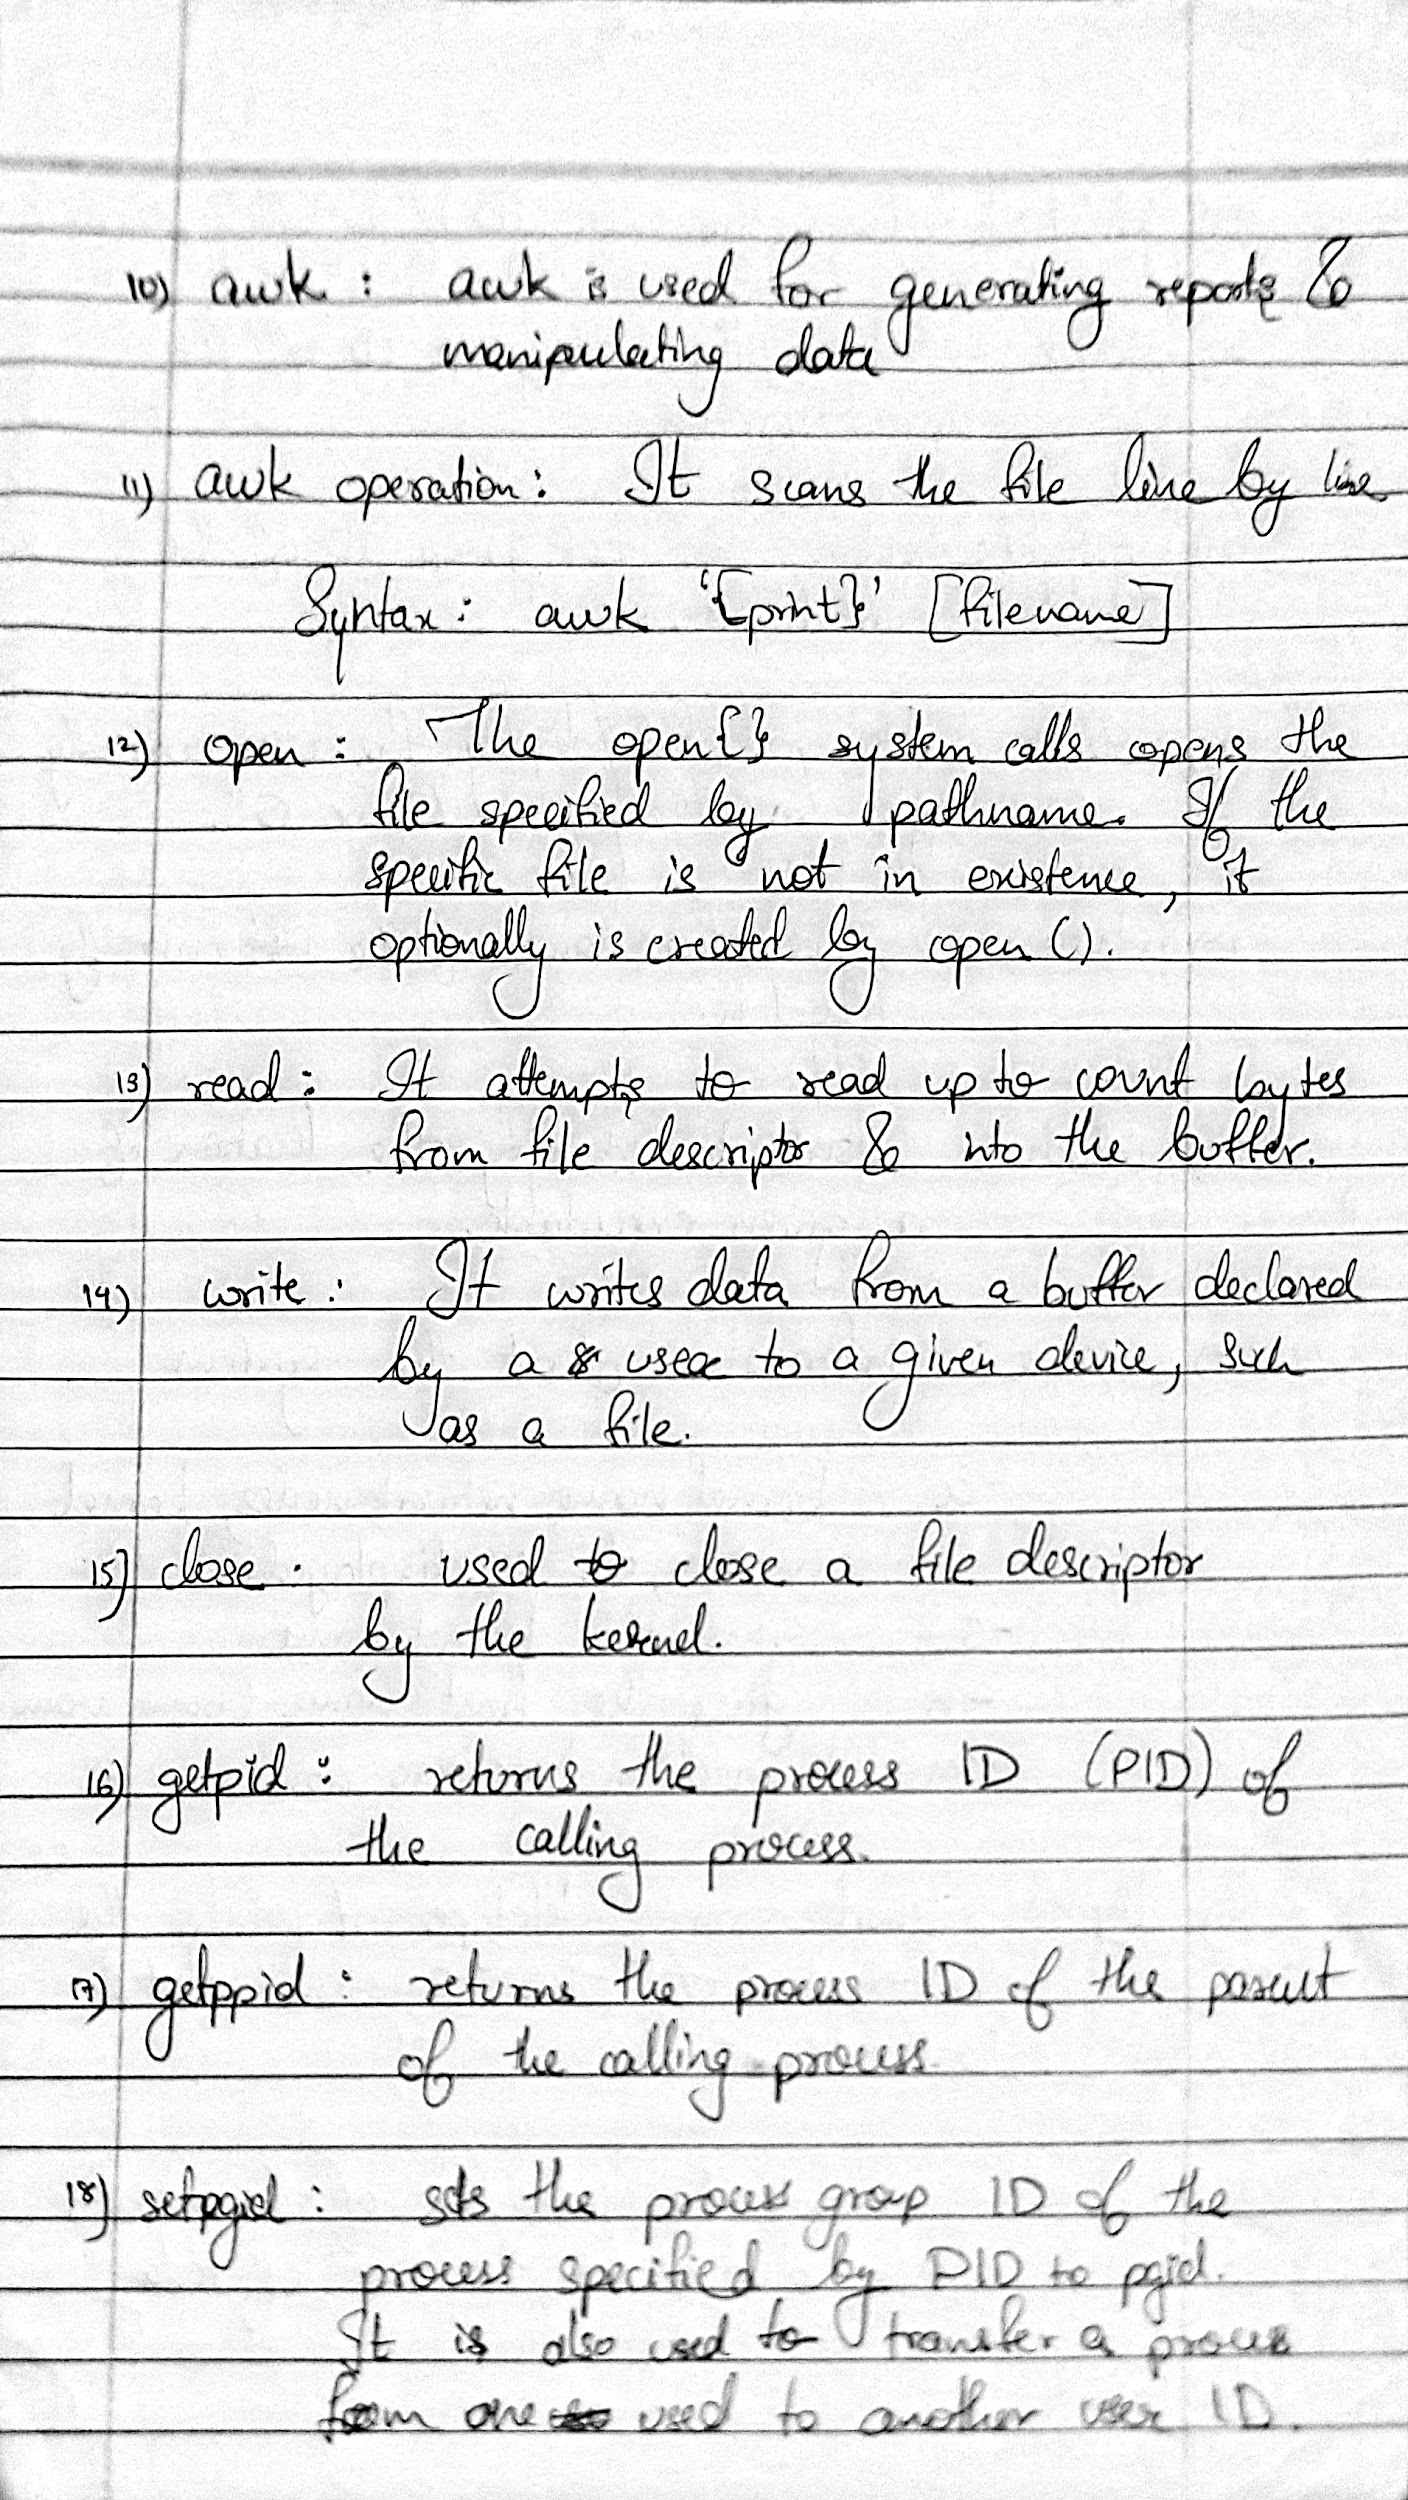 10) awk : awk is used for generating reports &
manipulating data
11) awk operation: It scans the file line by line
Syntax: awk '{print}' [filename]
12) open : The open{} system calls opens the
file specified by pathname. If the
specific file is not in existence, it
optionally is created by open ().
13) read : It attempts to read up to count bytes
from file descriptor & into the buffer.
14) write : It writes data from a buffer declared
by a user to a given device, such
as a file.
15) close . used to close a file descriptor
by the kernel.
16) getpid : returns the process ID (PID) of
the calling process.
17) getppid : returns the process ID of the parent
of the calling process
18) setpgid : sets the process group ID of the
process specified by PID to pgid.
It is also used to transfer a process
from one used to another user ID.